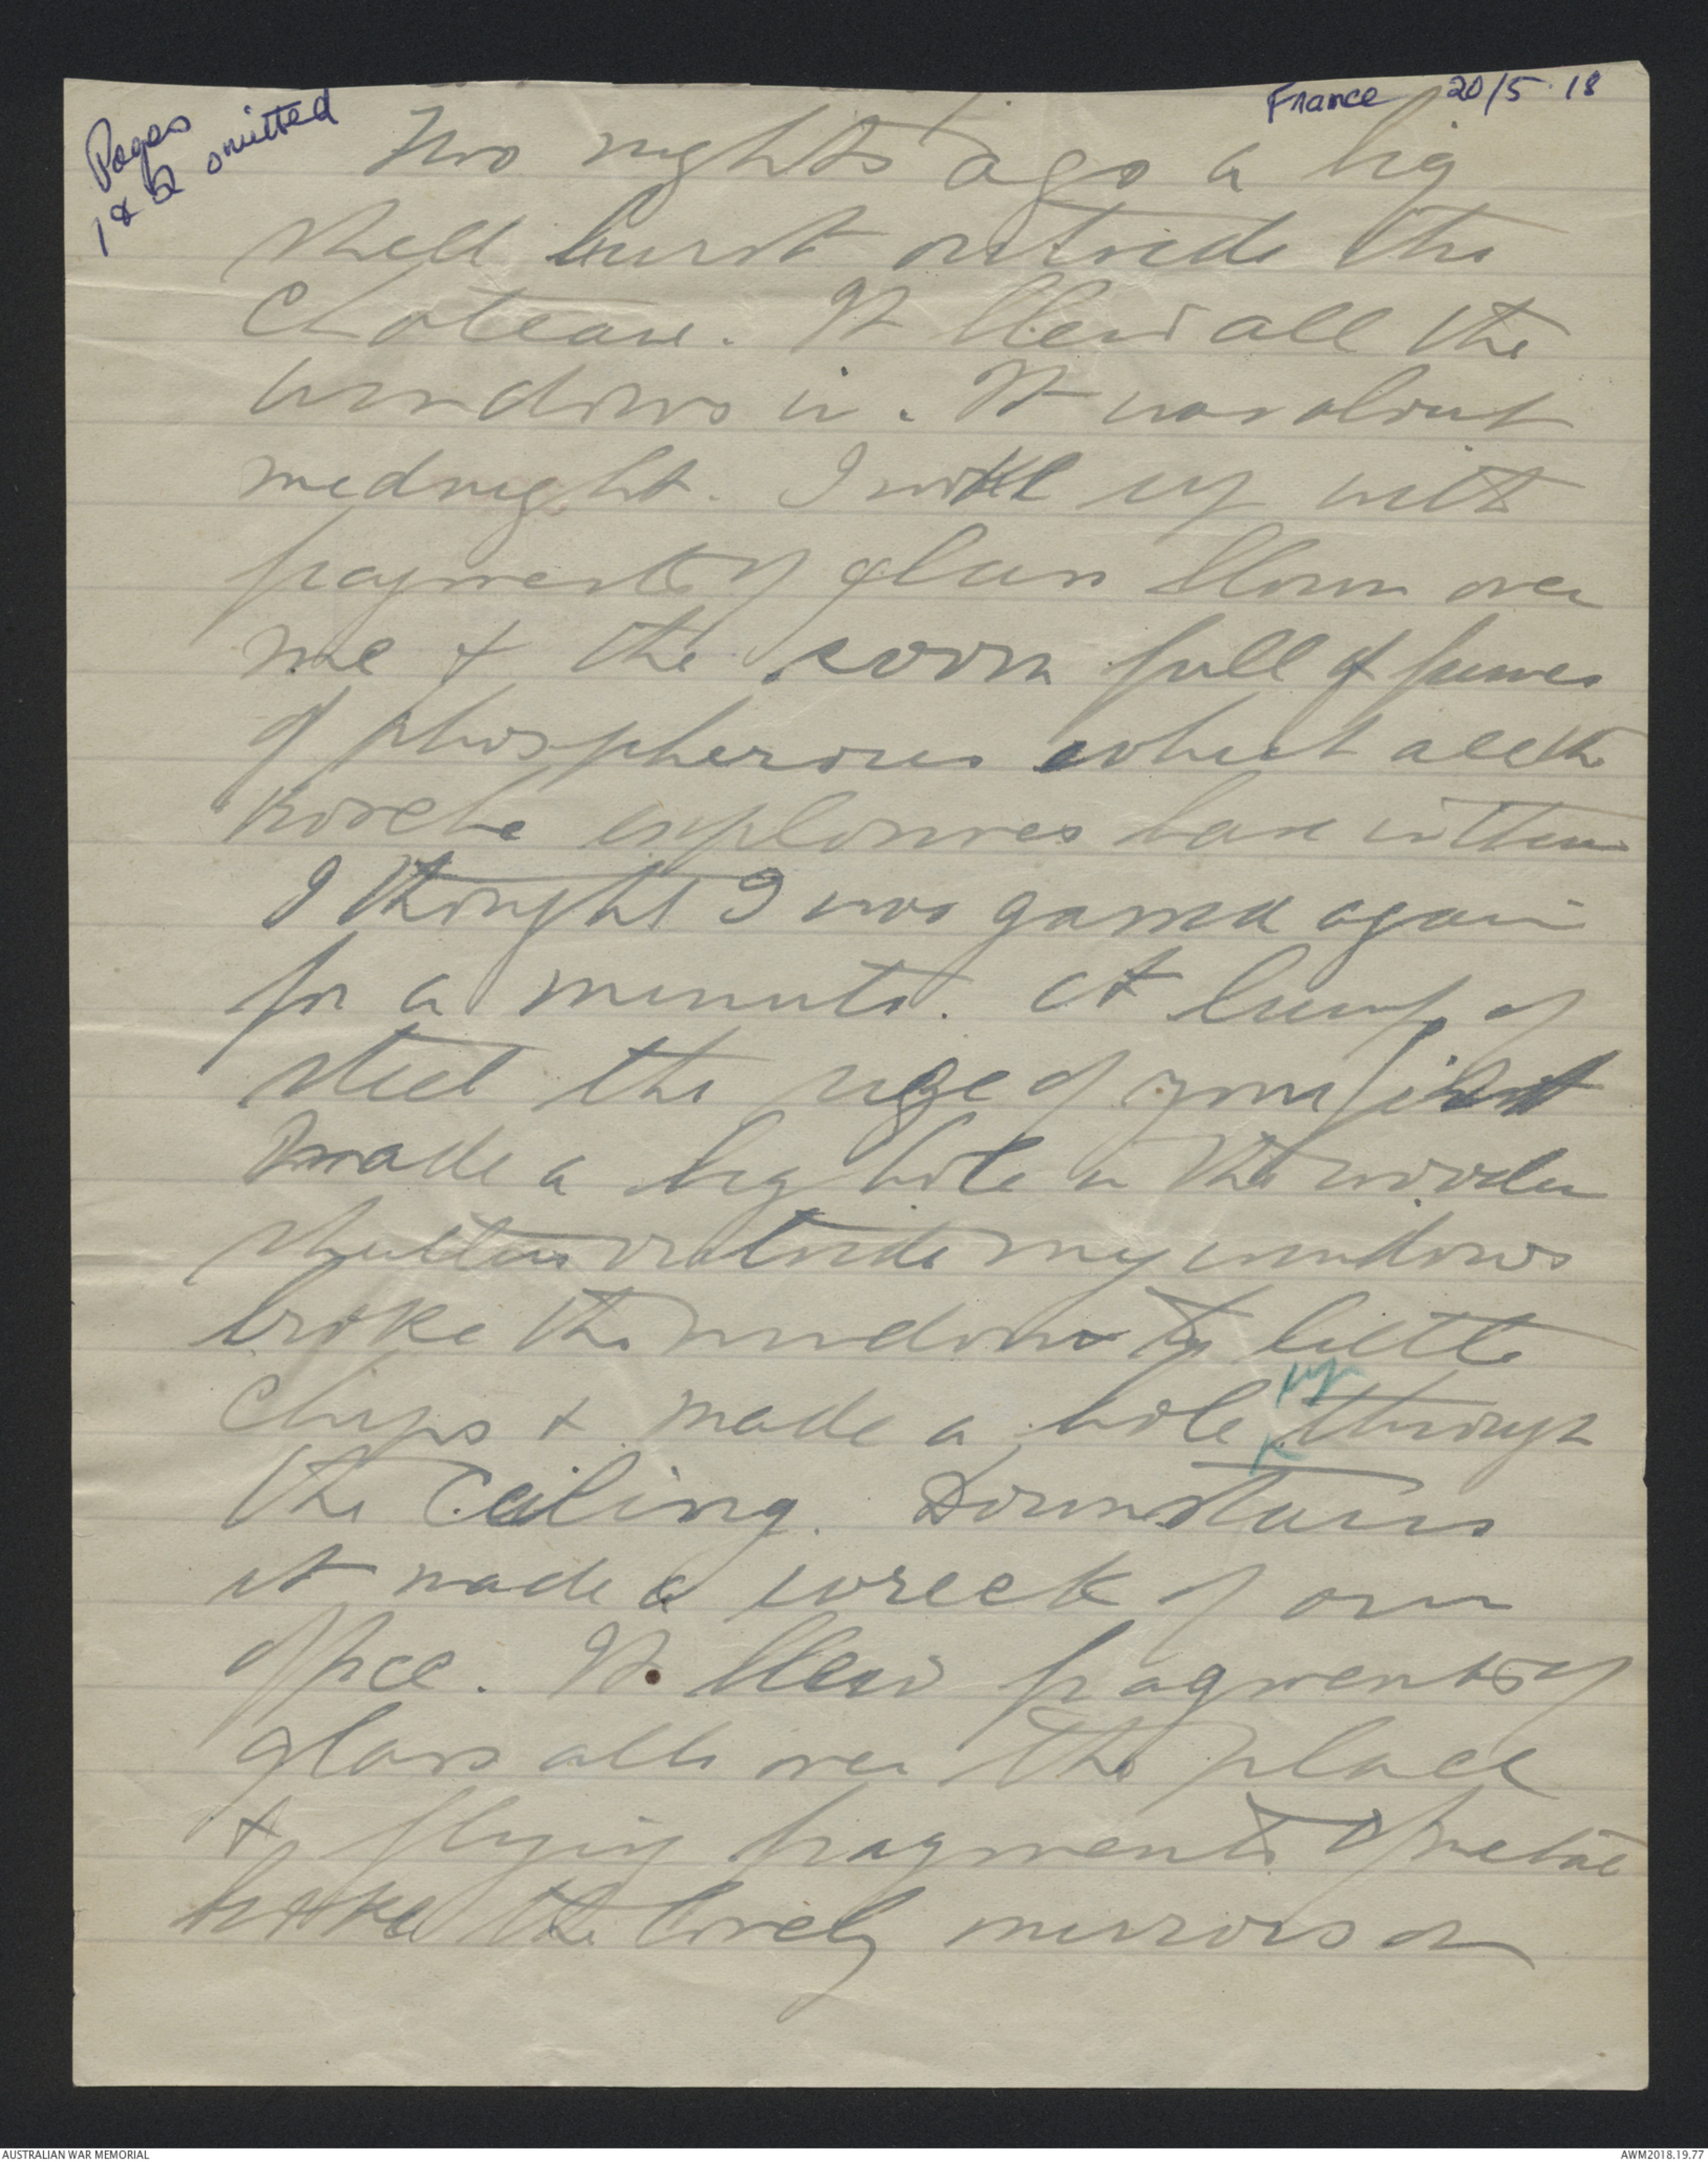 Pages
1 & 2 omitted
France 20/5.18
Two nights ago a big
shell burst outside the
Chateau. It blew all the
windows in. It was about
midnight. I woke up with
fragments of glass blown over
me & the room full of fumes
of phospherous which all the
Bosche explosives have in them
I thought I was gassed again
for a minute. A lump of
steel the size of your fist
made a big hole in the wooden
shutters outside my windows
broke the windows to little
chips & made a hole up through
the ceiling. Downstairs
it made a wreck of our
office. It blew fragments of
glass all over the place
& flying fragments of metal
broke the lovely mirrors on
AUSTRALIAN WAR MEMORIAL
AWM2018.19.77